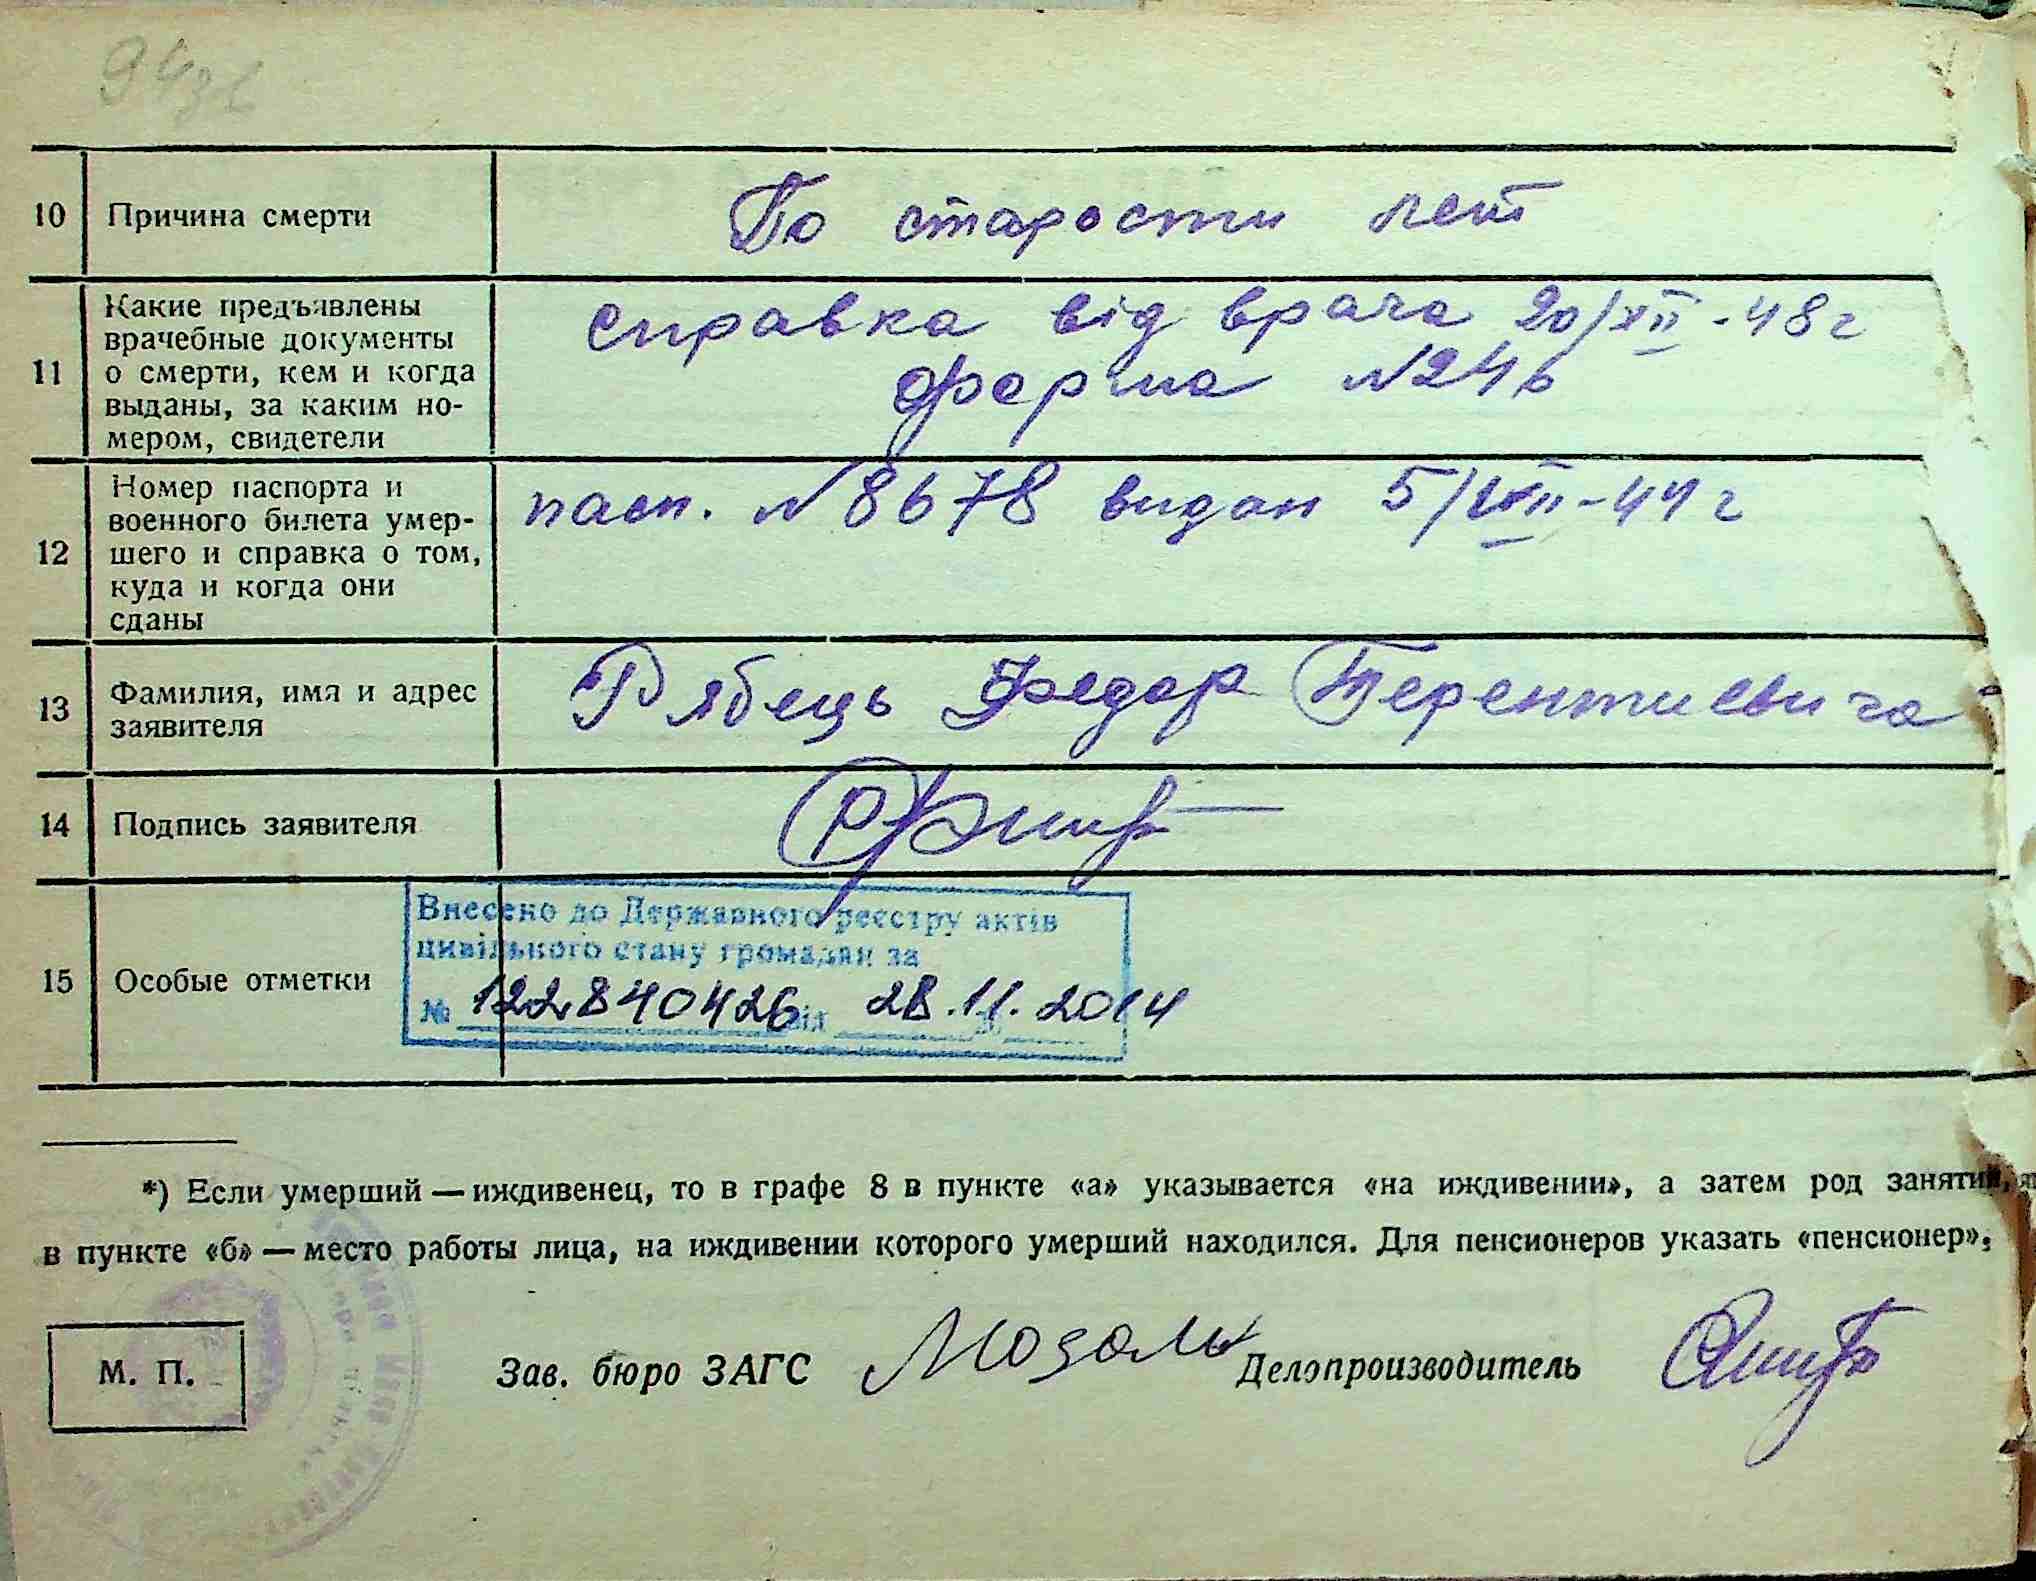 943в
10 Причина смерти По старости лет
11 Какие предъявлены
врачебные документы
о смерти, кем и когда
выданы, за каким но-
мером, свидетели
справка від врача 20/XII-48 г
форма N24в
12 Номер паспорта и
военного билета умер-
шего и справка о том,
куда и когда они
сданы
пасп. N8678 видан 5/VIII-44 г
13 Фамилия, имя и адрес
заявителя
Рябець Федор Терентиевича
14 Подпись заявителя
15 Особые отметки
Внесено до Державного реєстру актів
цивільного стану громадян за
№ 122840426 від 28.11.2014
*) Если умерший — иждивенец, то в графе 8 в пункте «а» указывается «на иждивении», а затем род занятий,
в пункте «б» — место работы лица, на иждивении которого умерший находился. Для пенсионеров указать «пенсионер».
М. П.
Зав. бюро ЗАГС Мозоль Делопроизводитель